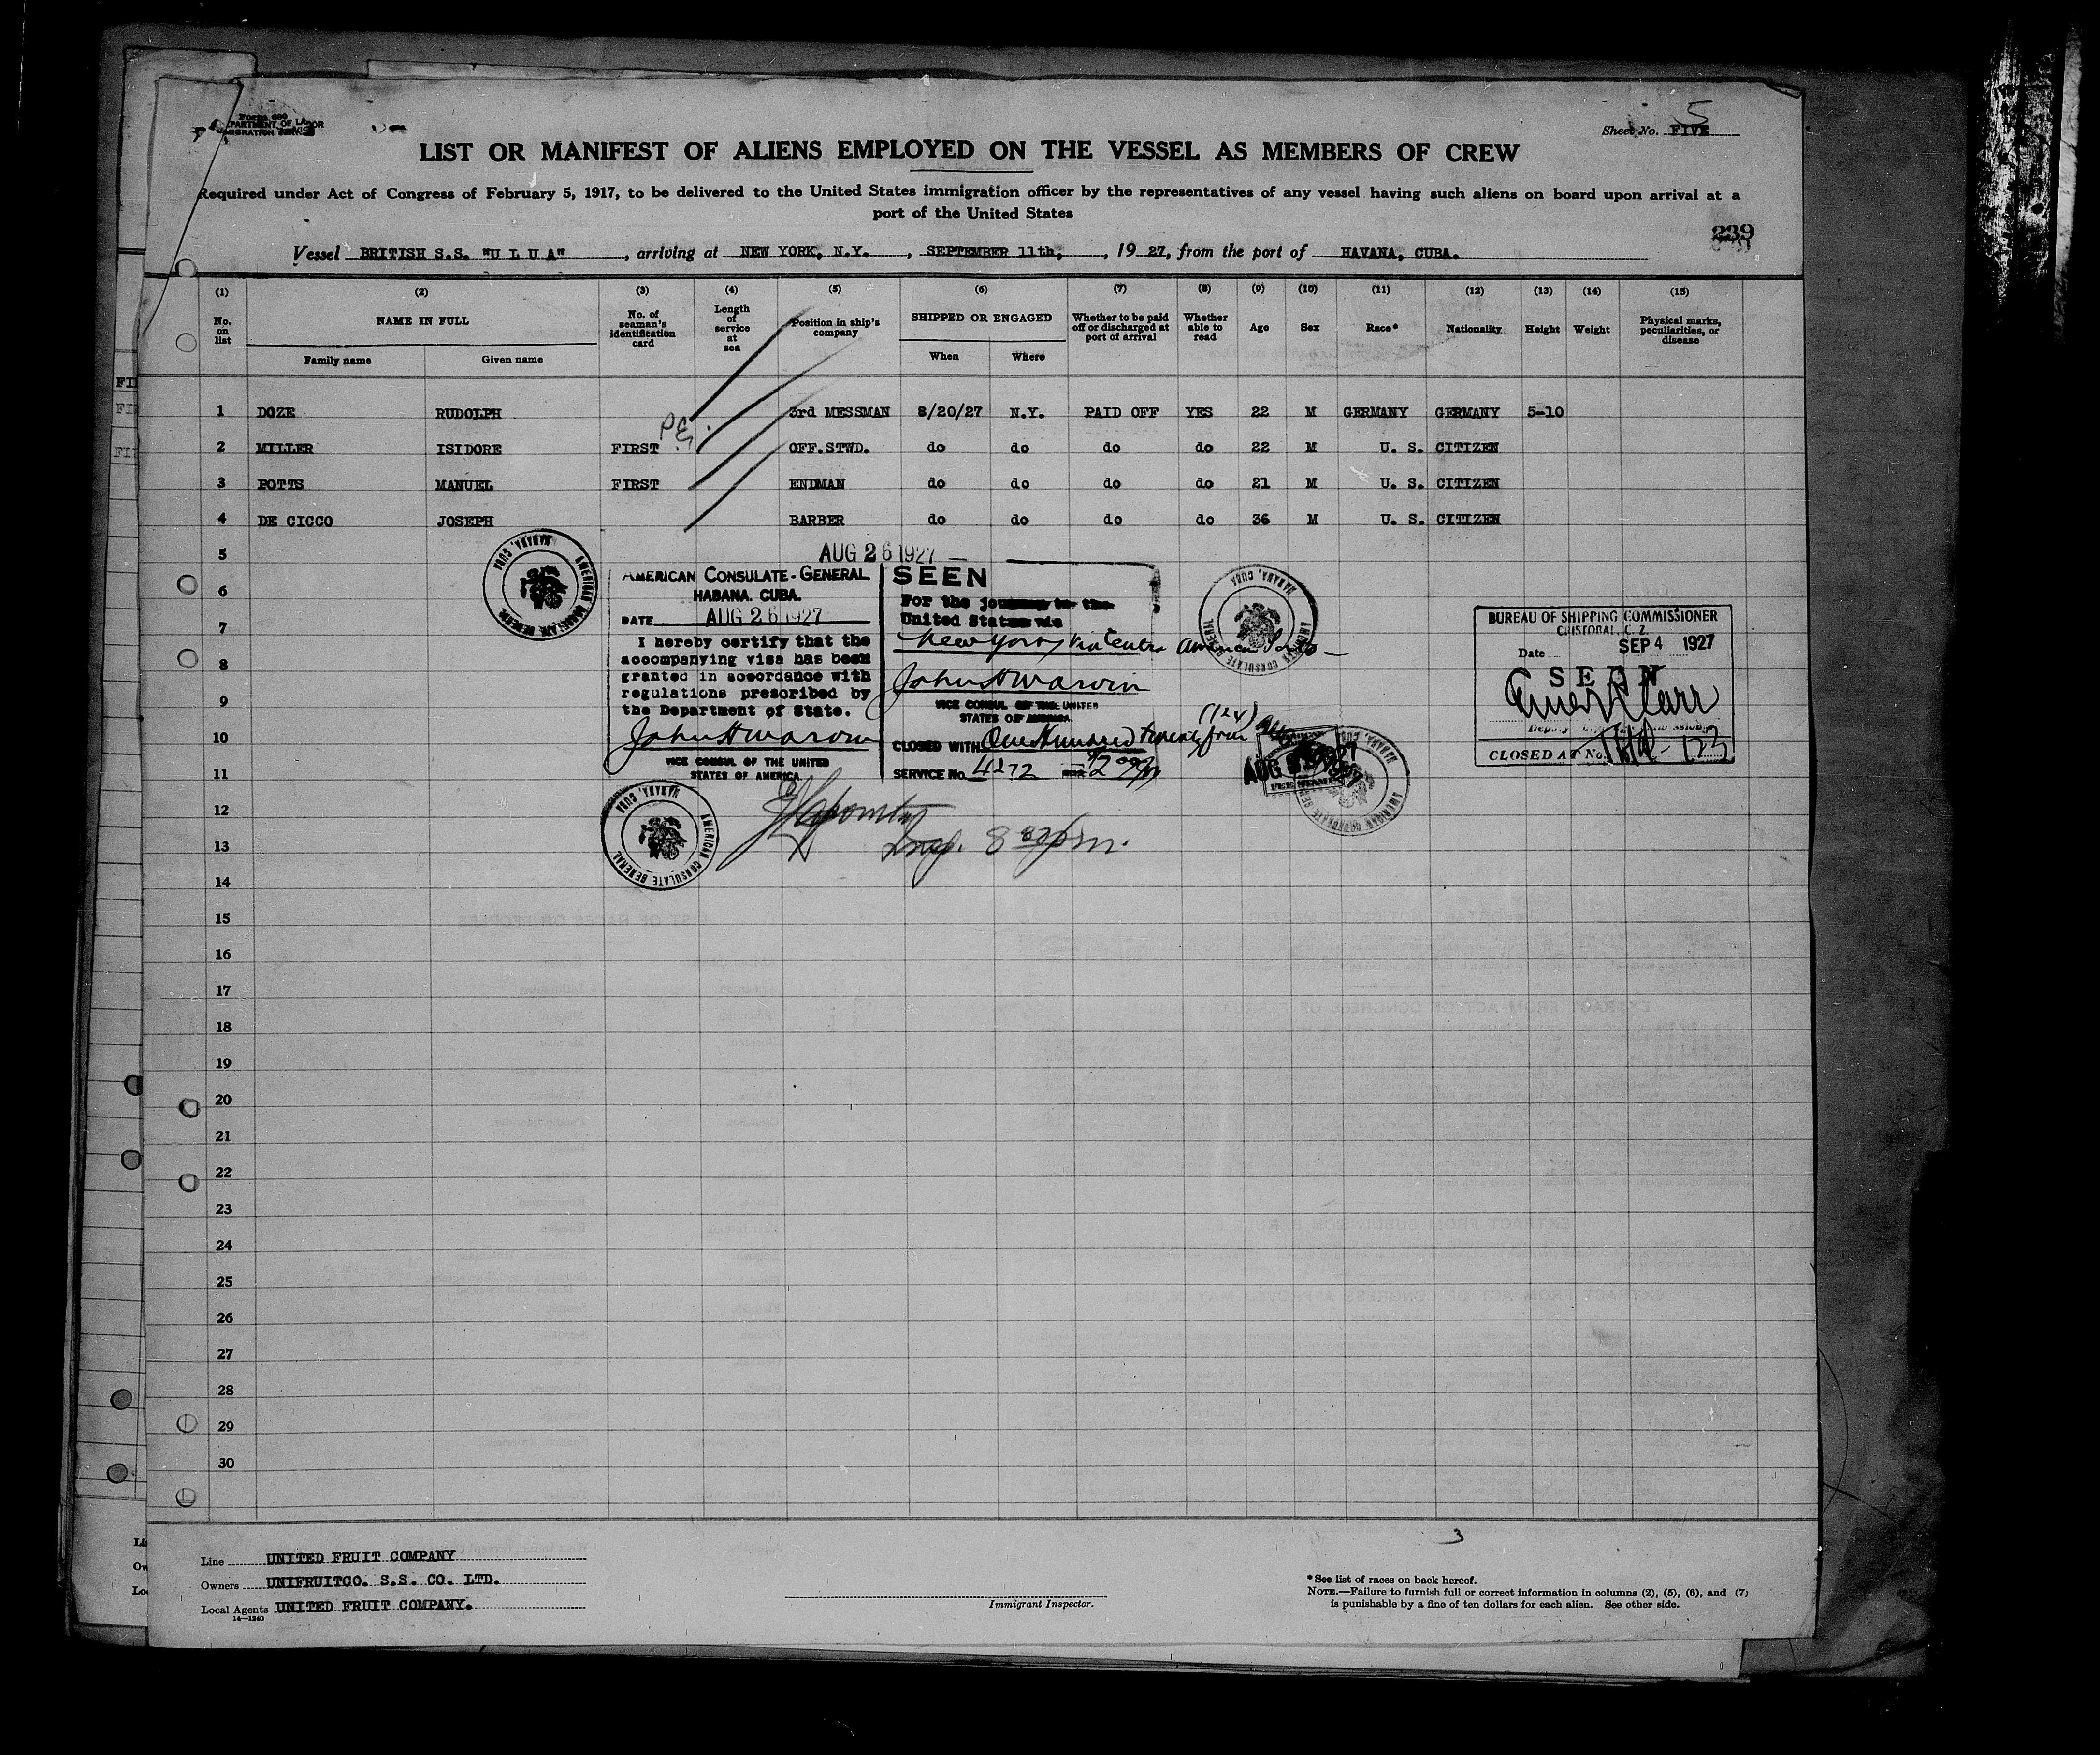 Form 680
DEPARTMENT OF LABOR
IMMIGRATION SERVICE
5
Sheet No. FIVE
LIST OR MANIFEST OF ALIENS EMPLOYED ON THE VESSEL AS MEMBERS OF CREW
Required under Act of Congress of February 5, 1917, to be delivered to the United States immigration officer by the representatives of any vessel having such aliens on board upon arrival at a
port of the United States
239
Vessel BRITISH S.S. "U L U A" , arriving at NEW YORK, N.Y. , SEPTEMBER 11th, , 19 27, from the port of HAVANA, CUBA.
(1) (2) (3) (4) (5) (6) (7) (8) (9) (10) (11) (12) (13) (14) (15)
No. on list NAME IN FULL No. of seaman's identification card Length of service at sea Position in ship's company SHIPPED OR ENGAGED Whether to be paid off or discharged at port of arrival Whether able to read Age Sex Race* Nationality Height Weight Physical marks, peculiarities, or disease
Family name Given name When Where
1 DOZE RUDOLPH 3rd MESSMAN 8/20/27 N.Y. PAID OFF YES 22 M GERMANY GERMANY 5-10
2 MILLER ISIDORE FIRST OFF.STWD. do do do do 22 M U. S. CITIZEN
3 POTTS MANUEL FIRST ENDMAN do do do do 21 M U. S. CITIZEN
4 DE CICCO JOSEPH BARBER do do do do 36 M U. S. CITIZEN
5
6
7
8
9
10
11
12
13
14
15
16
17
18
19
20
21
22
23
24
25
26
27
28
29
30
AUG 26 1927
AMERICAN CONSULATE GENERAL HABANA, CUBA
AMERICAN CONSULATE-GENERAL
HABANA. CUBA.
DATE AUG 26 1927
I hereby certify that the
accompanying visa has been
granted in accordance with
regulations prescribed by
the Department of State.
VICE CONSUL OF THE UNITED
STATES OF AMERICA.
SEEN
For the journey to the
United States via
New York via Central American Ports
VICE CONSUL OF THE UNITED
STATES OF AMERICA.
(124)
CLOSED WITH One Hundred twenty four
SERVICE No. 4272
AMERICAN CONSULATE GENERAL HABANA, CUBA
AMERICAN CONSULATE GENERAL HABANA, CUBA
AMERICAN CONSULATE GENERAL HABANA, CUBA
BUREAU OF SHIPPING COMMISSIONER
CRISTOBAL, C. Z.
Date SEP 4 1927
SEEN
CLOSED AT No.
3
Line UNITED FRUIT COMPANY
Owners UNIFRUITCO. S.S. CO. LTD.
Local Agents UNITED FRUIT COMPANY.
14—1240
Immigrant Inspector.
* See list of races on back hereof.
NOTE.—Failure to furnish full or correct information in columns (2), (5), (6), and (7)
is punishable by a fine of ten dollars for each alien. See other side.